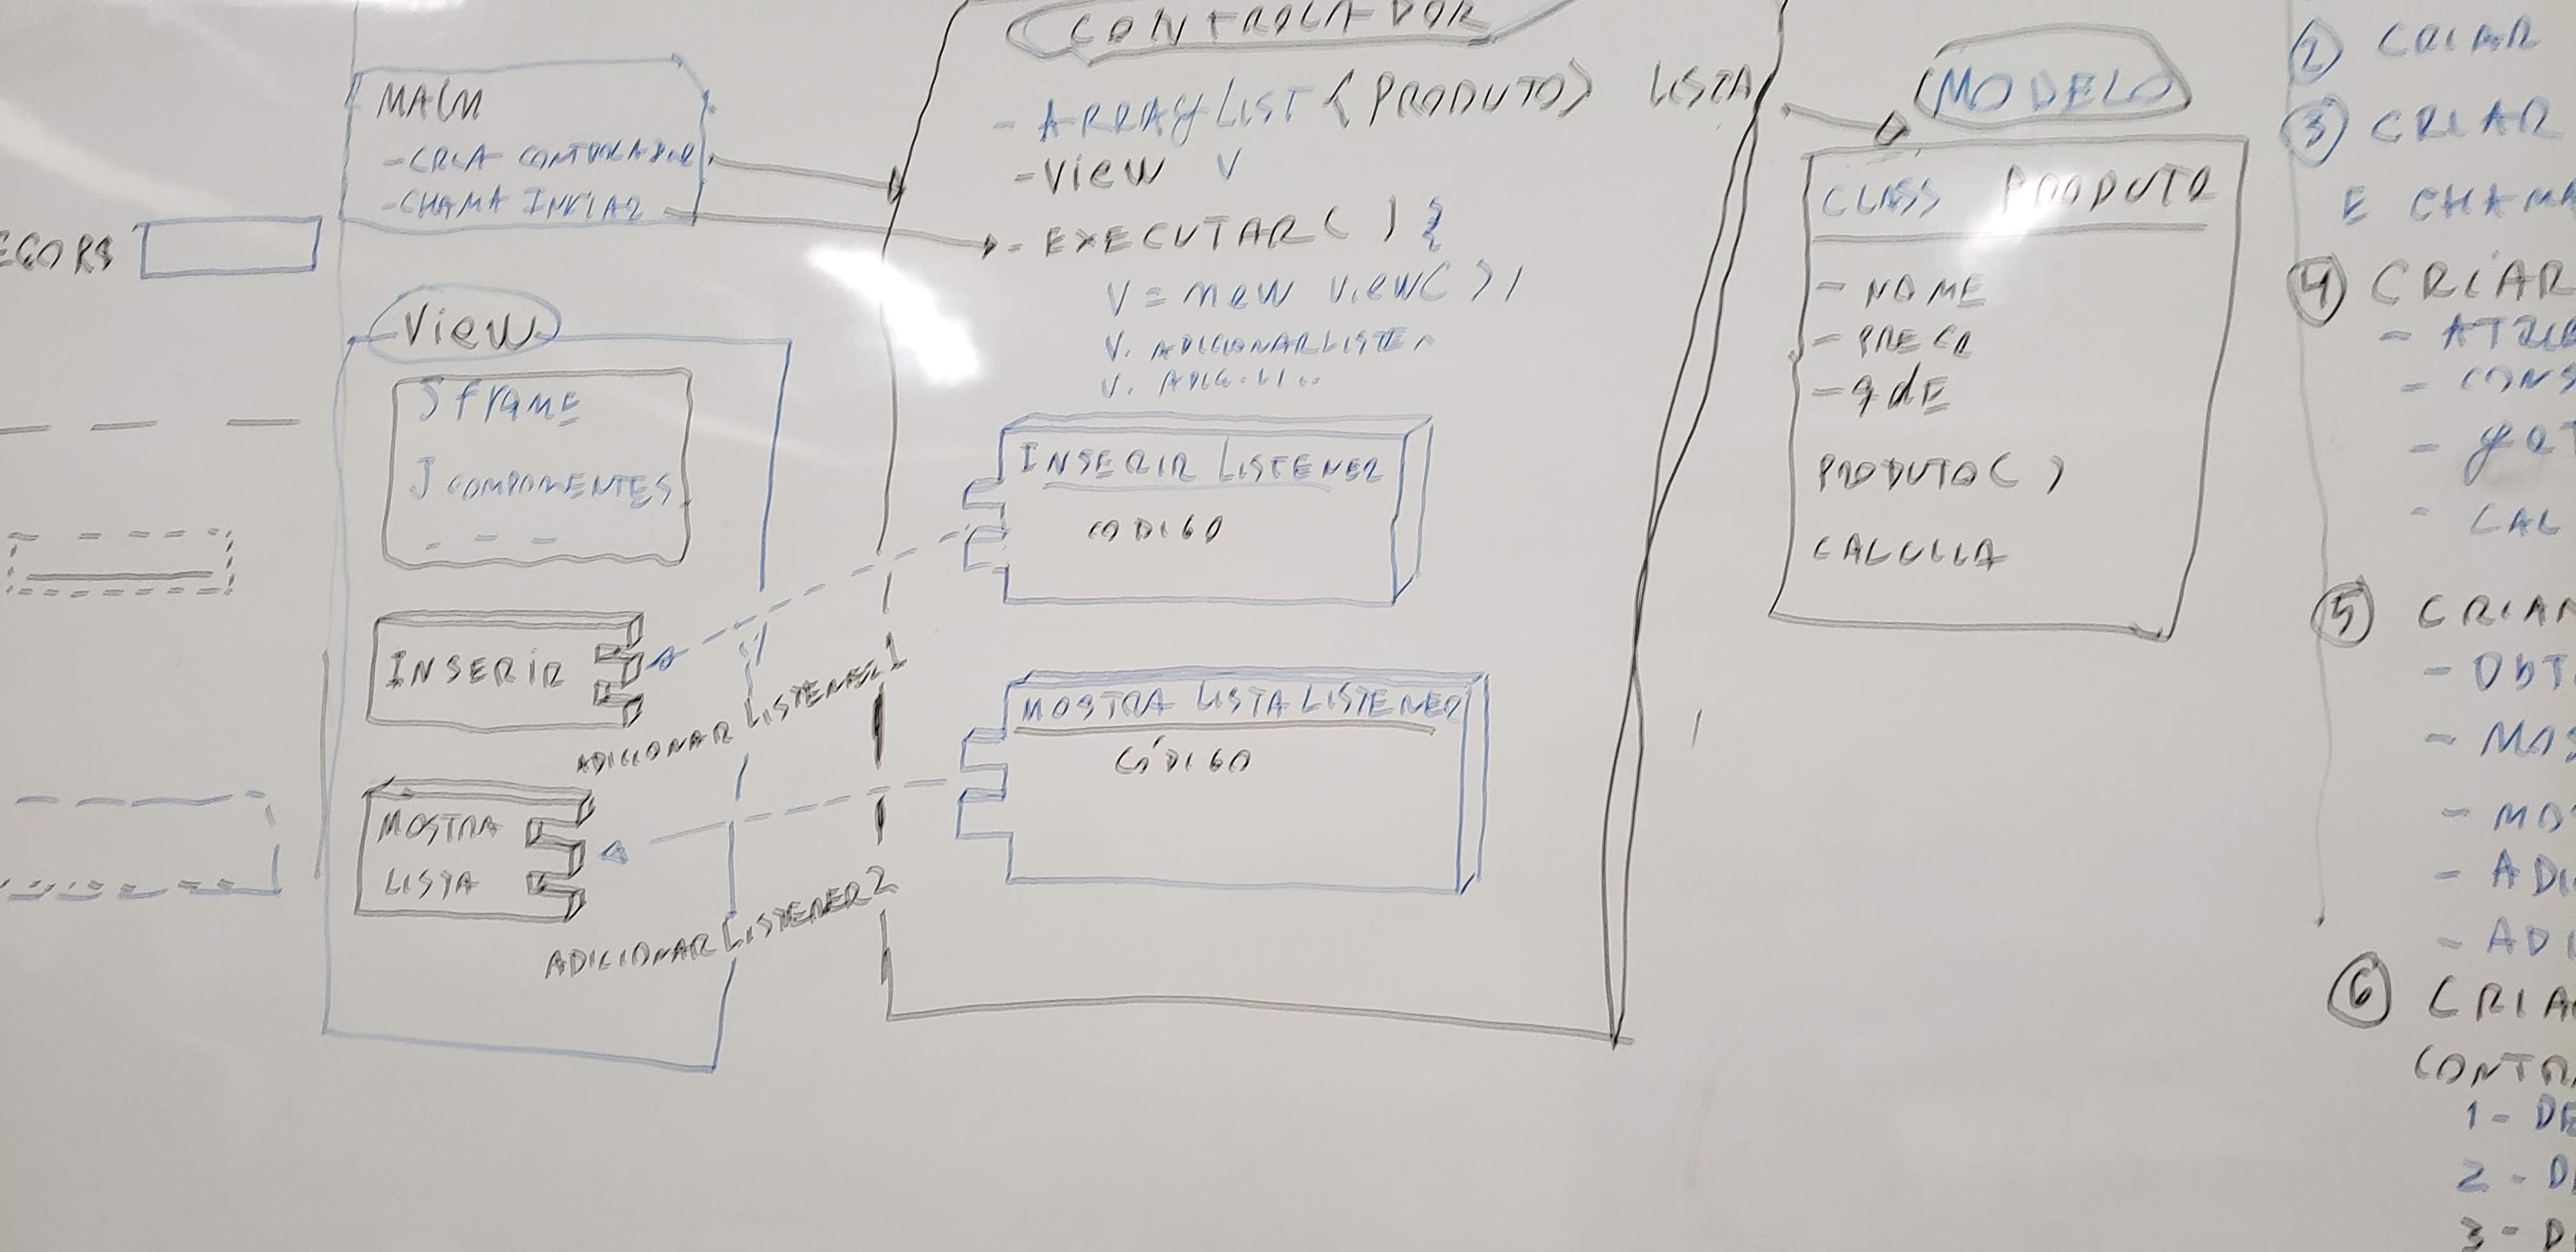 MAIN
- CRIA CONTROLADOR
- CHAMA INICIAR
View
JFRAME
J COMPONENTES
- - -
INSERIR
ADICIONAR LISTENER1
MOSTRA
LISTA
ADICIONAR LISTENER2
CONTROLADOR
- ARRAYLIST <PRODUTO> LISTA
- View V
- EXECUTAR( ) {
V = new View( );
V. ADICIONARLISTEN
INSERIR LISTENER
CODIGO
MOSTRA LISTA LISTENER
CÓDIGO
MODELO
CLASS PRODUTO
- NOME
- PRECO
- qdE
PRODUTO( )
CALCULA
② CRIAR
③ CRIAR
E CHAMA
④ CRIAR
- CONS
- CAL
⑤ CRIAR
- ObT
- MOS
- MOS
- ADI
- ADI
⑥
1 - DE
2 - D
3 - D